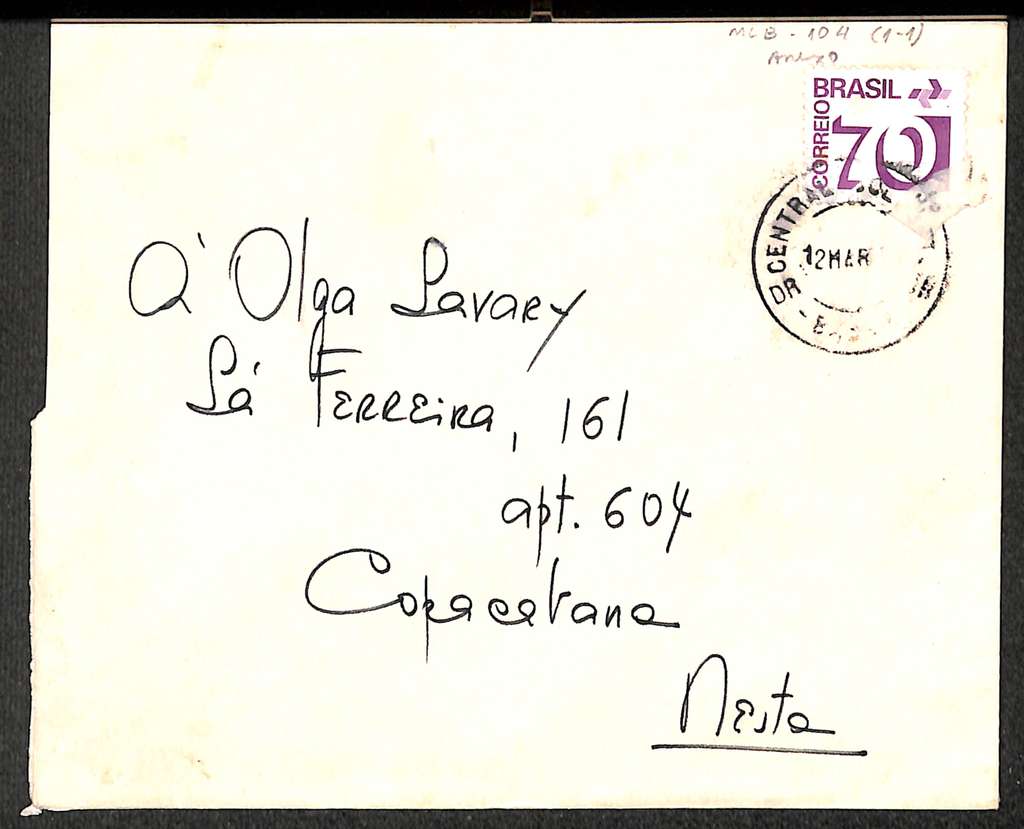 MLB - 104 (1-1)
Anexo
BRASIL
CORREIO
70
CENTRAL
12 MAR
DR
À Olga Savary
Sá Ferreira, 161
apt. 604
Copacabana
Nesta